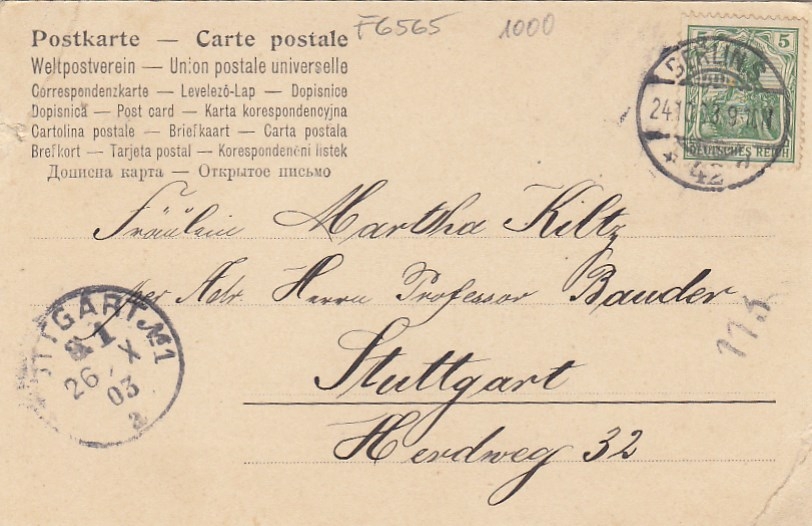 F6565 1000
Postkarte — Carte postale
Weltpostverein — Union postale universelle
Correspondenzkarte — Levelező-Lap — Dopisnice
Dopisnică — Post card — Karta korespondencyjna
Cartolina postale — Briefkaart — Carta postala
Brefkort — Tarjeta postal — Korespondenčni listek
Дописна карта — Открытое письмо
5 5
DEUTSCHES REICH
BERLIN S.
24.10.03. 9-
* 42
Fräulein Martha Kiltz
per Adr. Herrn Professor Bauder
Stuttgart
Herdweg 32
STUTTGART.No 1
26 X
03
a